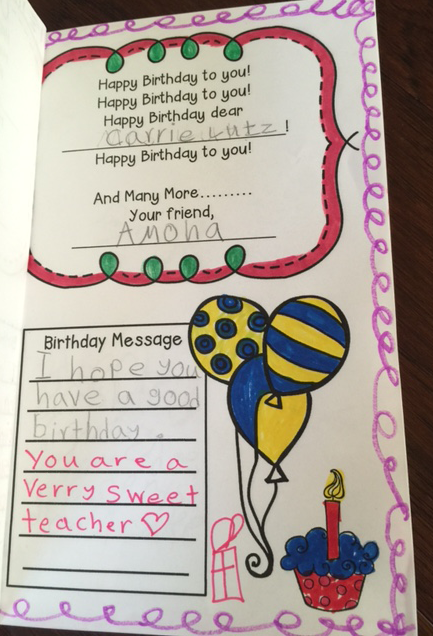 Happy Birthday to you!
Happy Birthday to you!
Happy Birthday dear
Carrie Lutz!
Happy Birthday to you!
And Many More.........
Your friend,
Amoha
Birthday Message
I hope you
have a good
birthday.
You are a
Verry sweet
teacher ♡